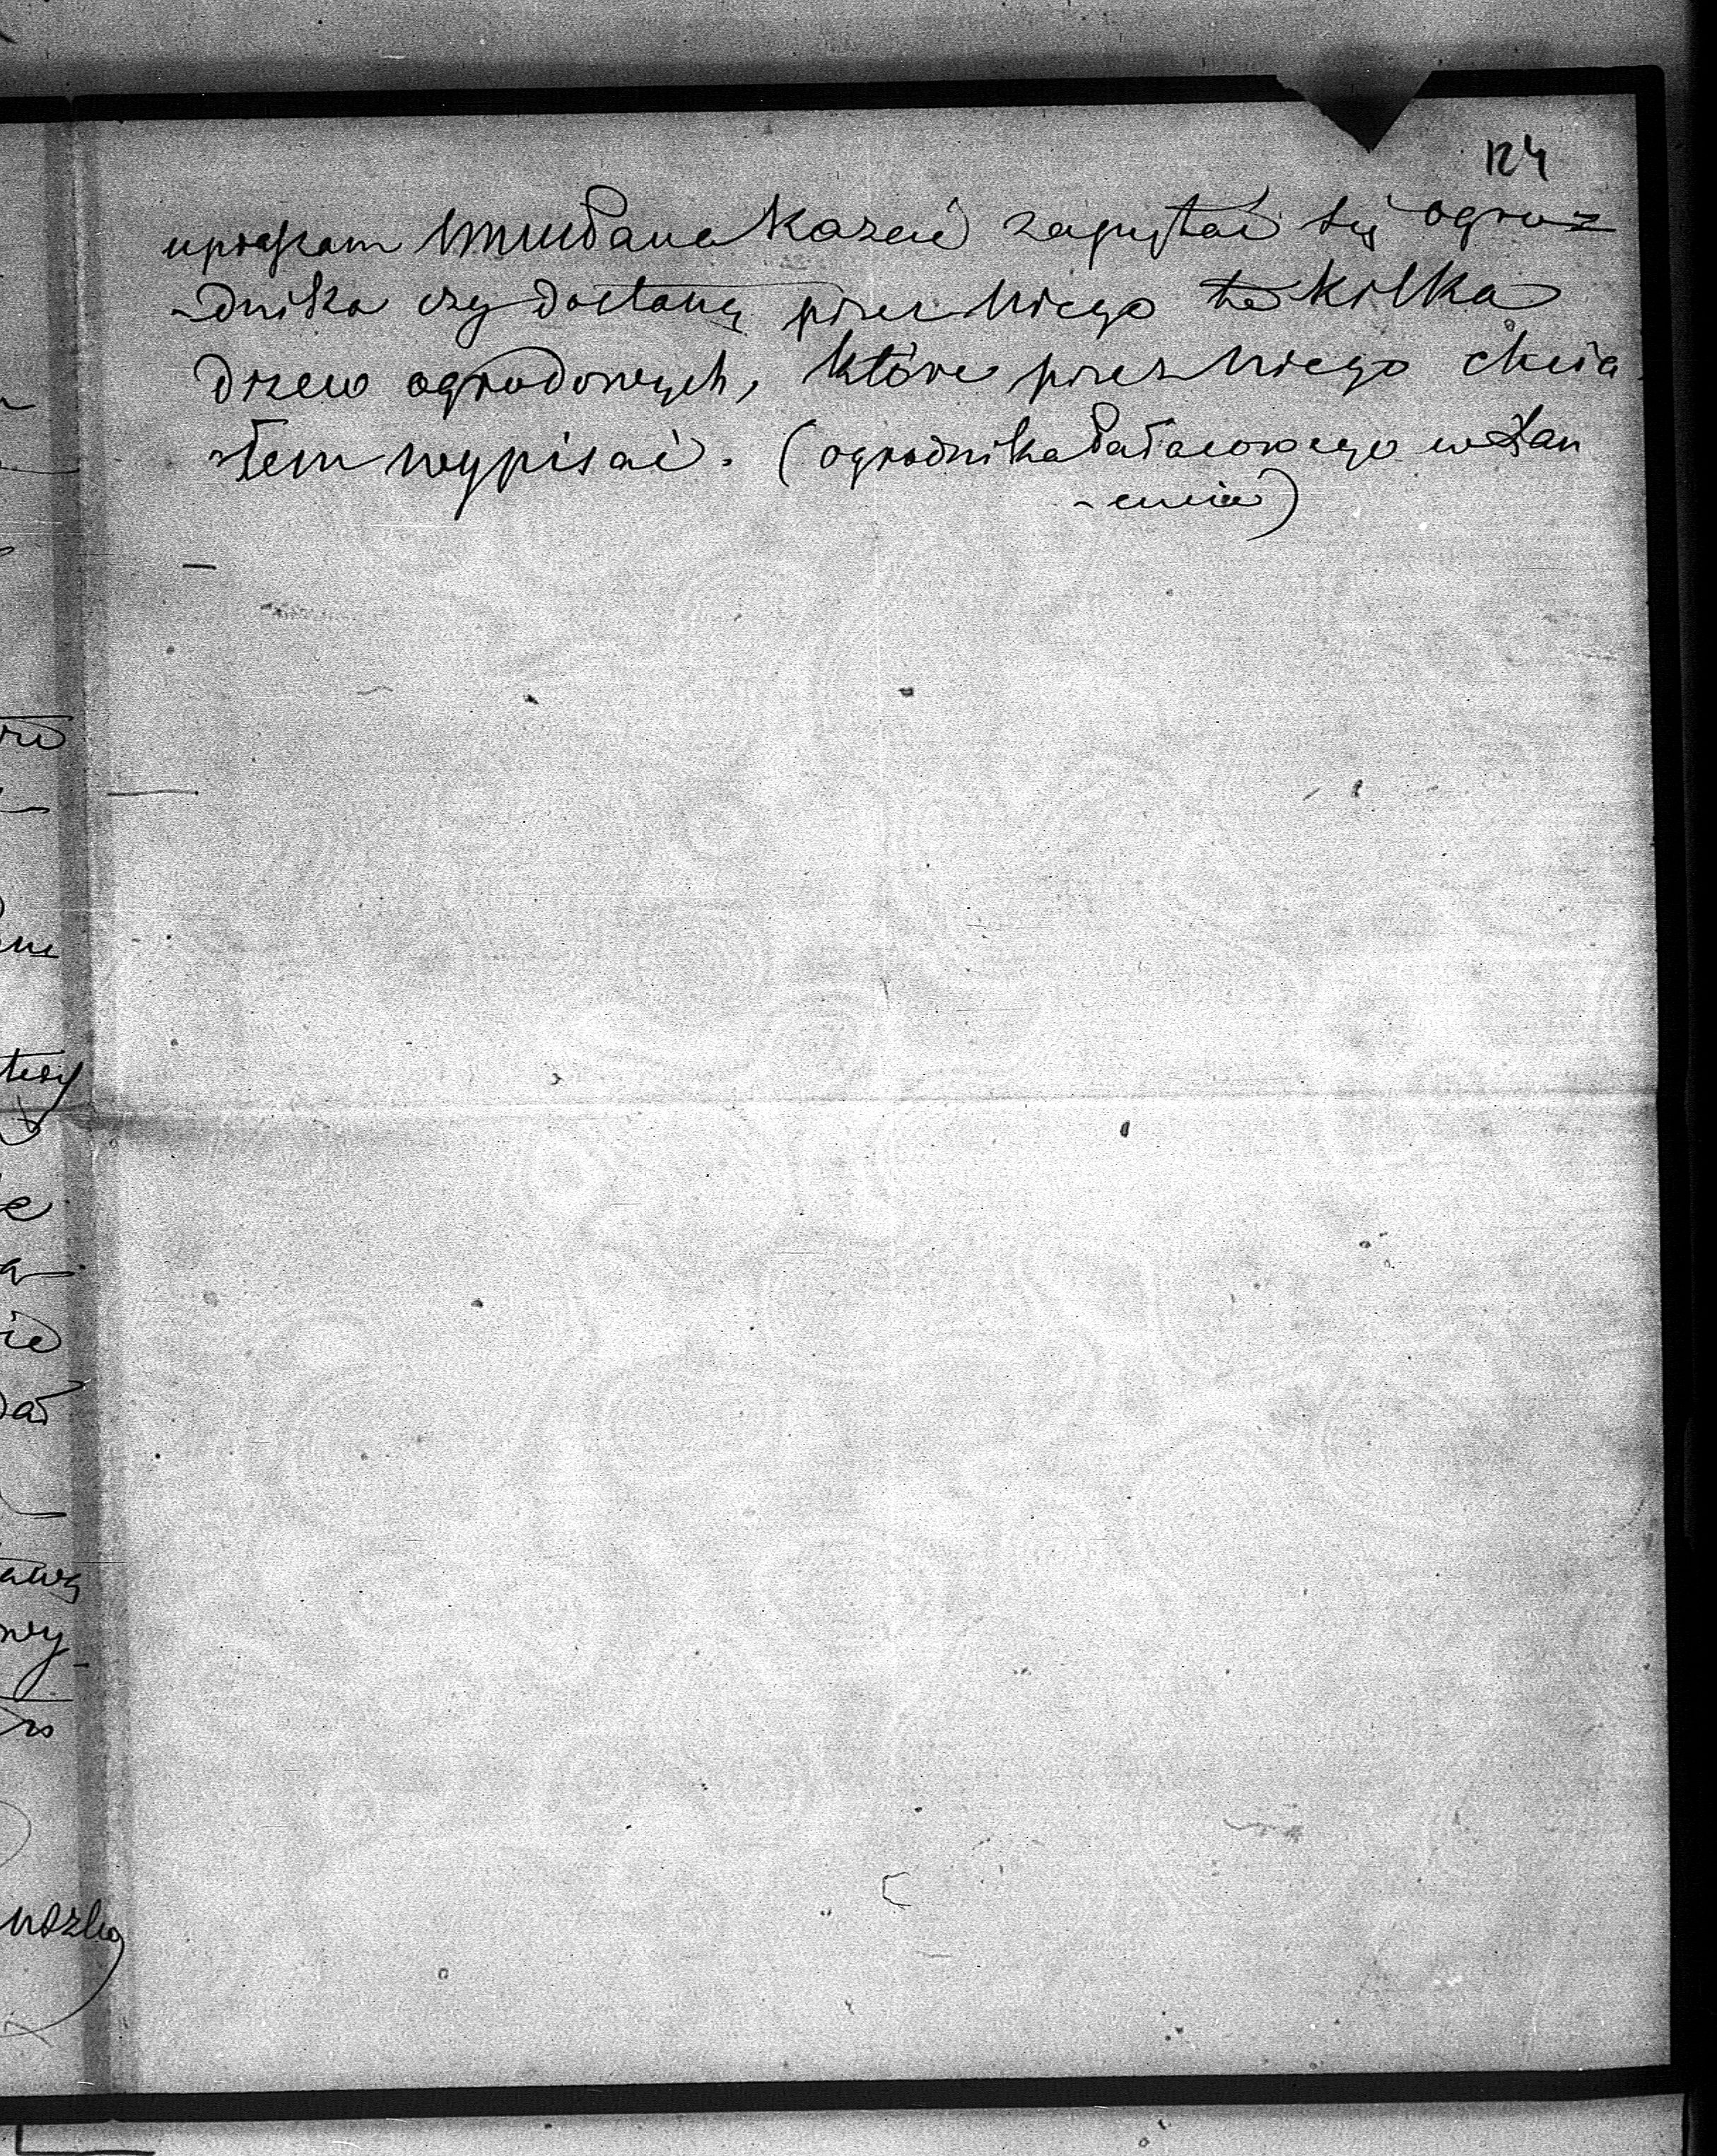 124
upraszam WMPDana kazać zapytać się ogro-
-dnika czy dostanę przez niego te kilka
drzew ogrodowych, które przez niego chcia
-łem wypisać. (ogrodnika Pałacowego w Łań
-cucie)